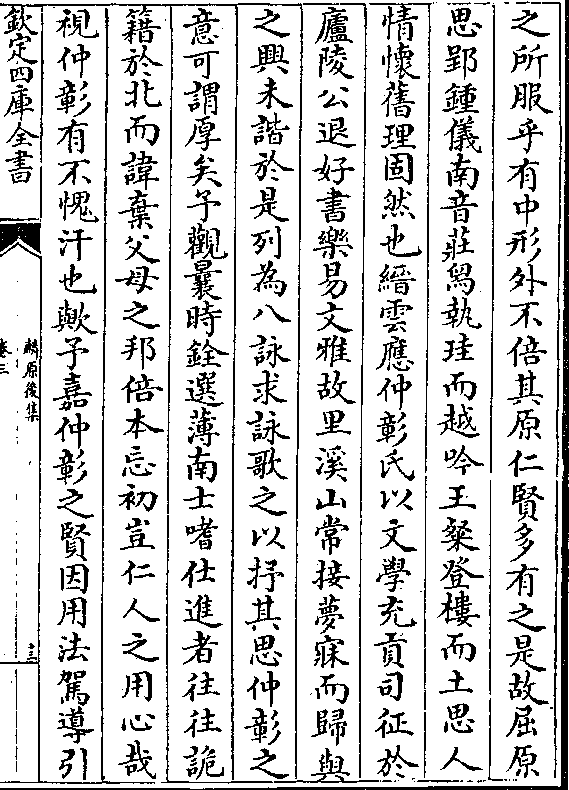 之所服乎有中形外不倍其原仁賢多有之是故屈原
思郢鍾儀南音莊舄執珪而越吟王粲登樓而土思人
情懷舊理固然也縉雲應仲彰氏以文學充貢司征於
廬陵公退好書樂易文雅故里溪山常接夢寐而歸與
之興未諧於是列為八詠求詠歌之以抒其思仲彰之
意可謂厚矣予觀曩時銓選薄南士嗜仕進者往往詭
籍於北而諱棄父母之邦倍本忘初豈仁人之用心哉
視仲彰有不愧汗也歟予嘉仲彰之賢因用法駕導引
欽定四庫全書
麟原後集
卷三
十三